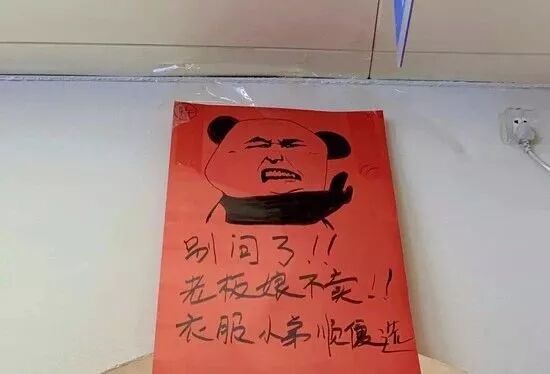 别问了!!
老板娘不卖!!
衣服小弟顺便选